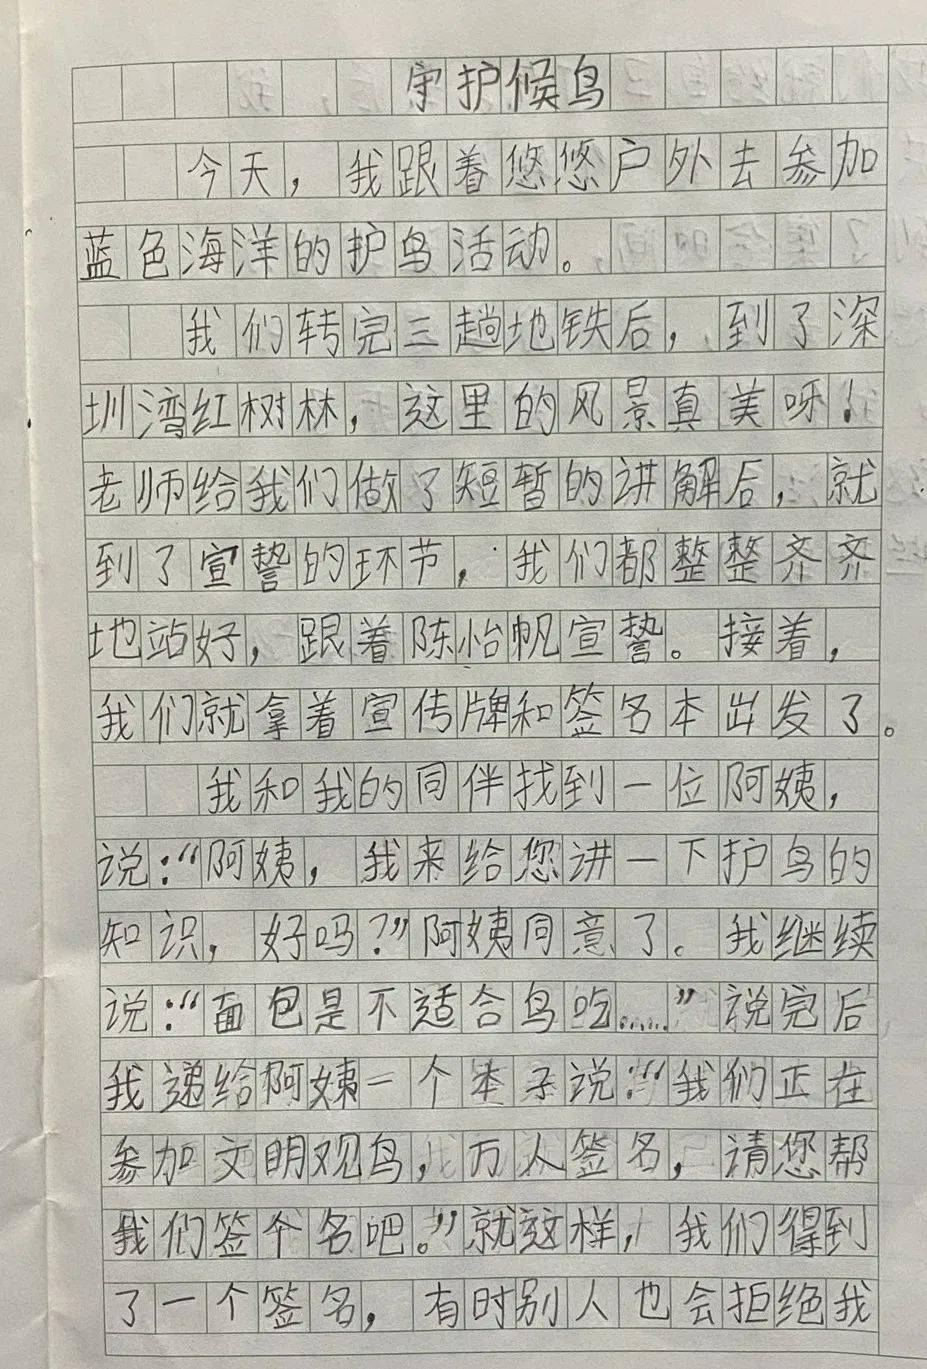 守护候鸟
今天，我跟着悠悠户外去参加
蓝色海洋的护鸟活动。
我们转完三趟地铁后，到了深
圳湾红树林，这里的风景真美呀！
老师给我们做了短暂的讲解后，就
到了宣誓的环节，我们都整整齐齐
地站好，跟着陈怡帆宣誓。接着，
我们就拿着宣传牌和签名本出发了。
我和我的同伴找到一位阿姨，
说：“阿姨，我来给您讲一下护鸟的
知识，好吗？”阿姨同意了。我继续
说：“面包是不适合鸟吃……”说完后
我递给阿姨一个本子说：“我们正在
参加文明观鸟，万人签名，请您帮
我们签个名吧。”就这样，我们得到
了一个签名，有时别人也会拒绝我